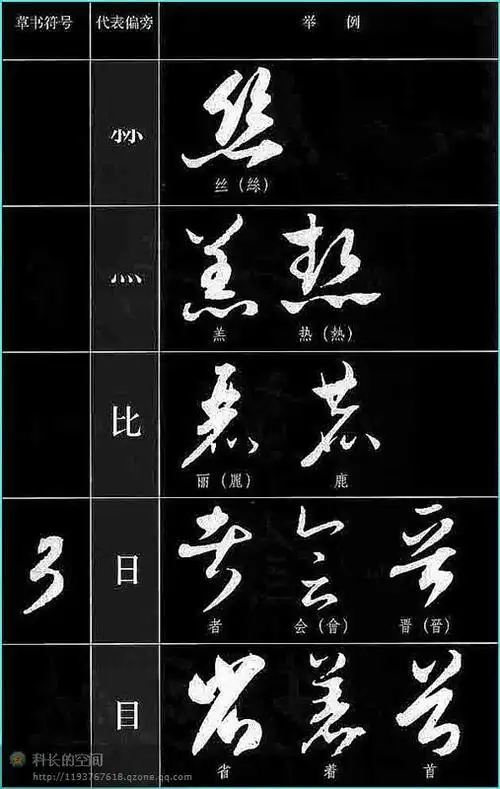 草书符号 代表偏旁 举 例
丝（絲）
灬
羔 热（熱）
比
丽（麗） 鹿
日
者 会（會） 晋（晉）
目
省 着 首
科长的空间
http://1193767618.qzone.qq.com